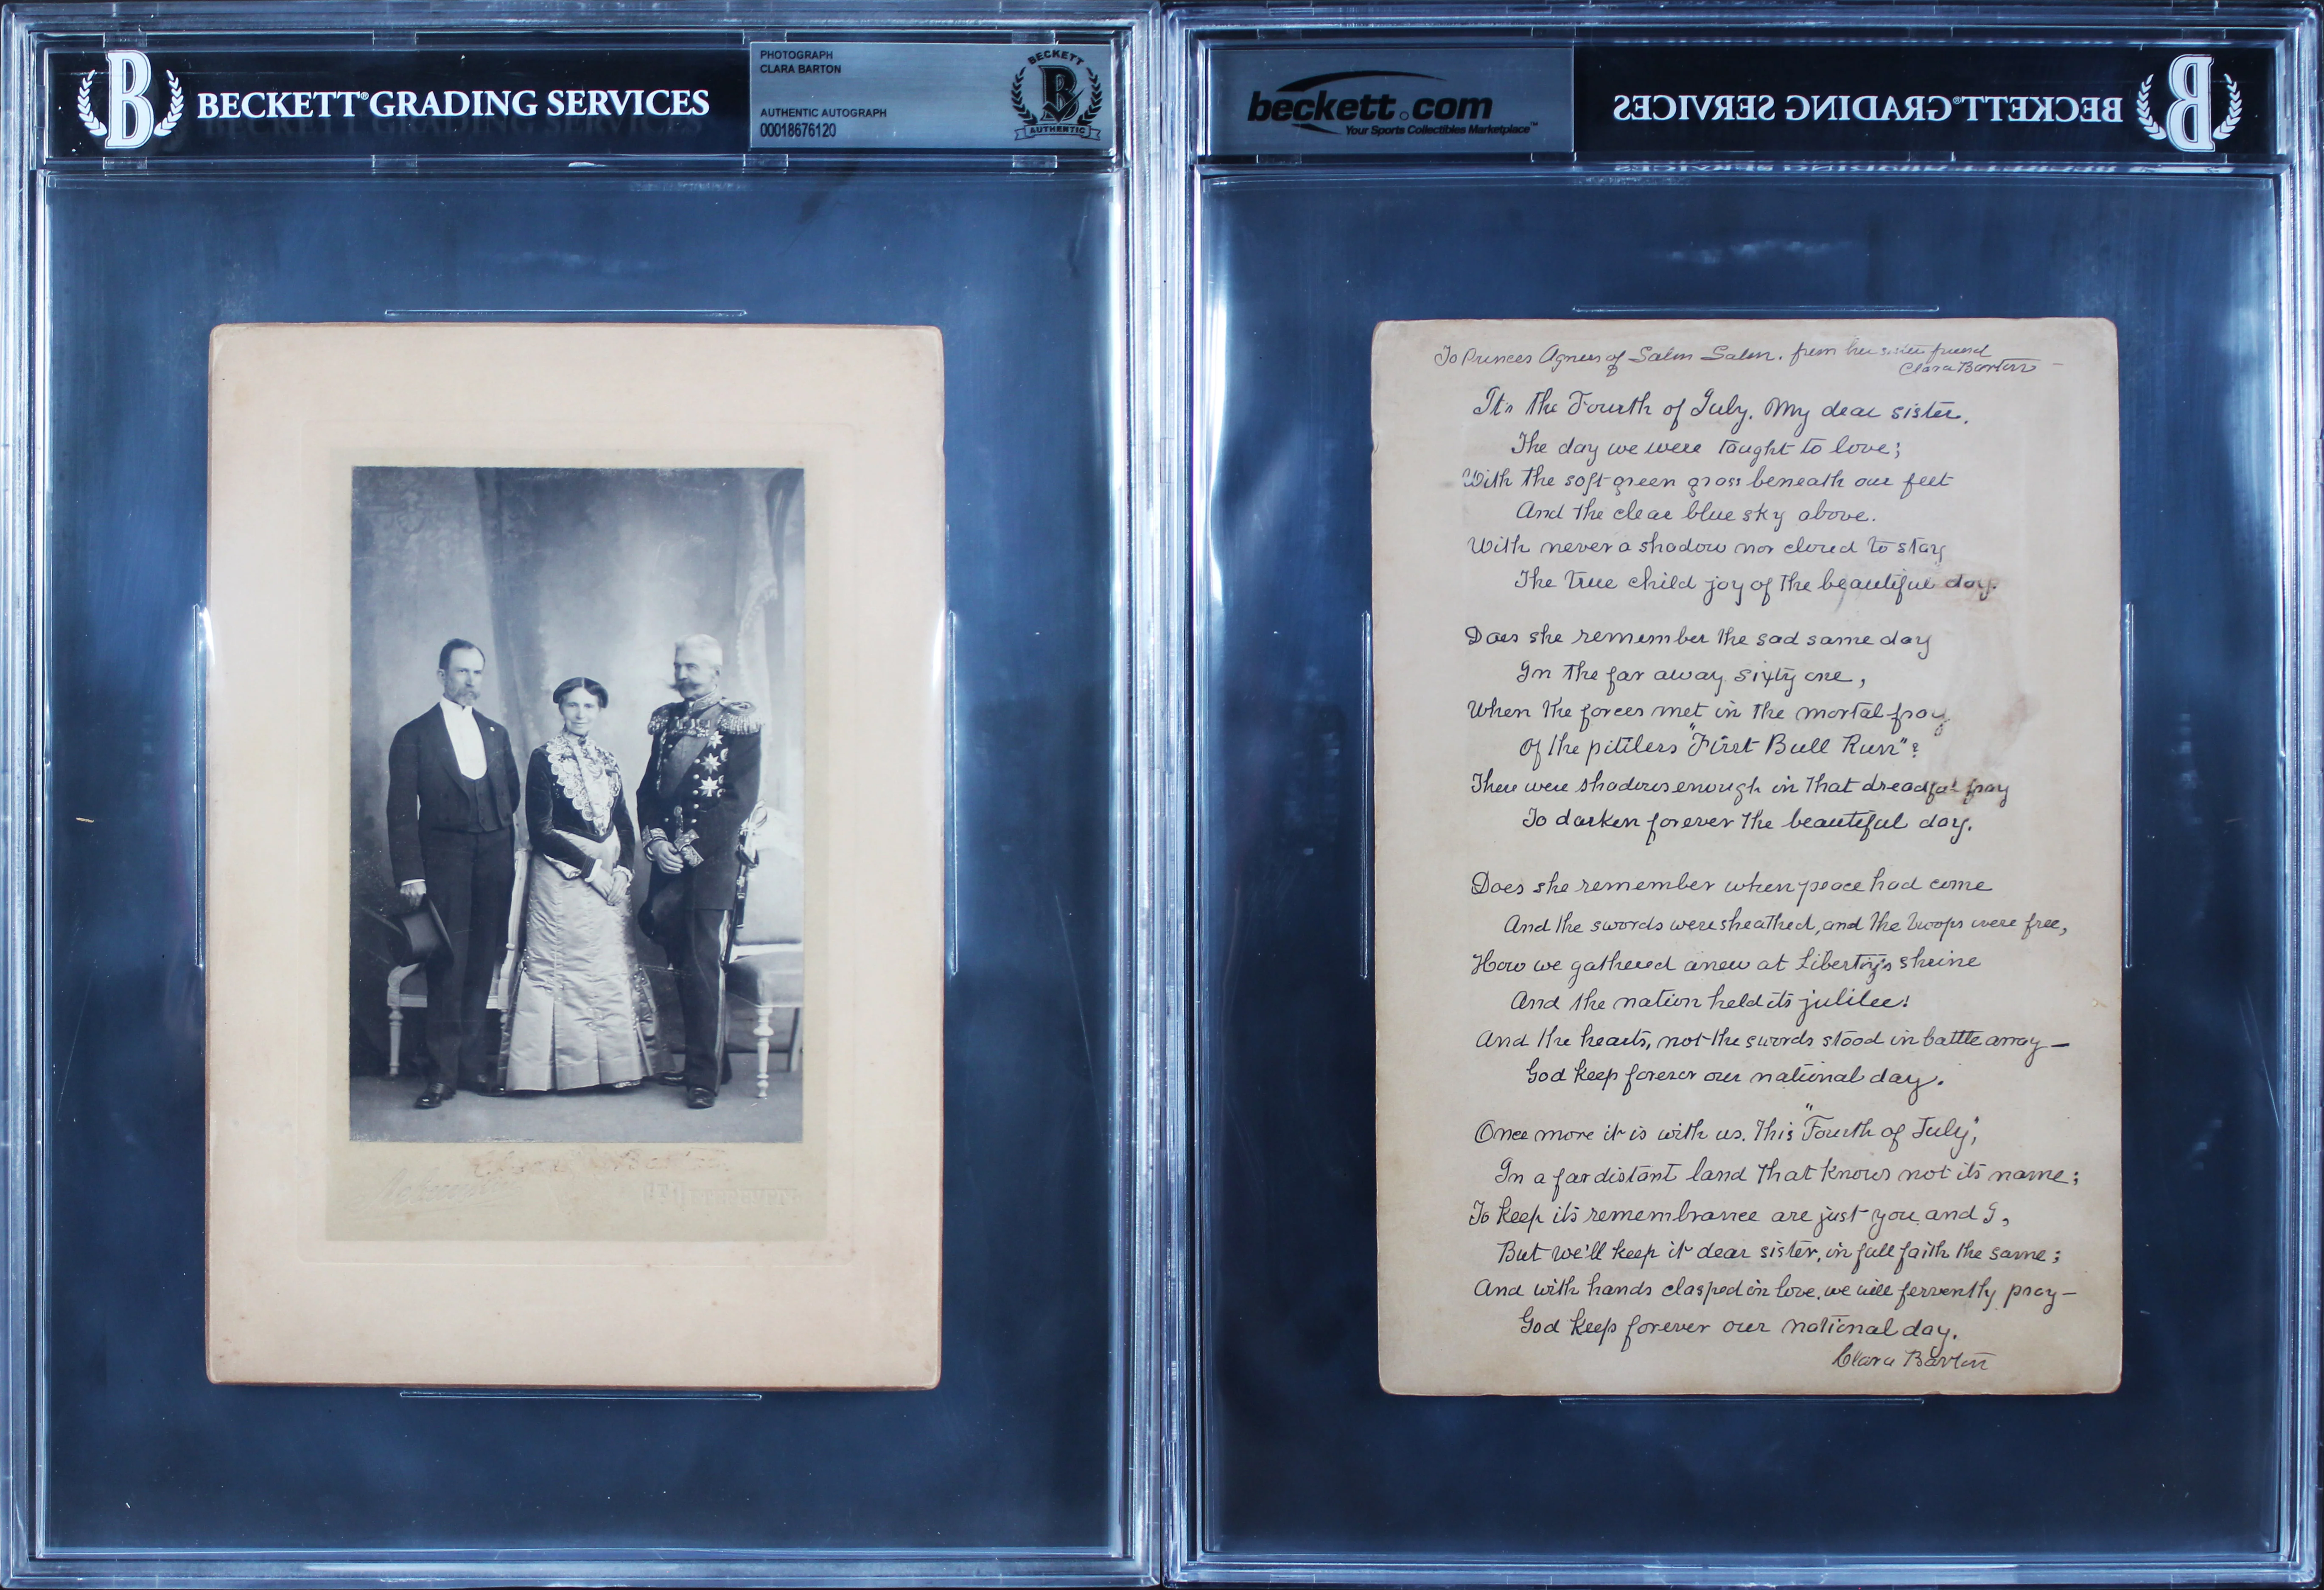 BECKETT® GRADING SERVICES
PHOTOGRAPH
CLARA BARTON
AUTHENTIC AUTOGRAPH
00018676120
BECKETT
AUTHENTIC
beckett.com
Your Sports Collectibles Marketplace™
BECKETT® GRADING SERVICES
To Princes Agnes of Salm Salm. from her sister friend
Clara Barton —
It's the Fourth of July. My dear sister.
The day we were taught to love;
With the soft green grass beneath our feet
And the clear blue sky above.
With never a shadow nor cloud to stay
The true child joy of the beautiful day.
Does she remember the sad same day
In the far away sixty one,
When the forces met in the mortal fray
Of the pitiless "First Bull Run"?
There were shadows enough in that dreadful fray
To darken forever the beautiful day.
Does she remember when peace had come
And the swords were sheathed, and the troops were free,
How we gathered anew at Liberty's shrine
And the nation held its jubilee!
And the hearts, not the swords stood in battle array —
God keep forever our national day.
Once more it is with us. This "Fourth of July",
In a far distant land that knows not its name;
To keep its remembrance are just you and I,
But we'll keep it dear sister, in full faith the same;
And with hands clasped in love, we will fervently pray —
God keep forever our national day.
Clara Barton